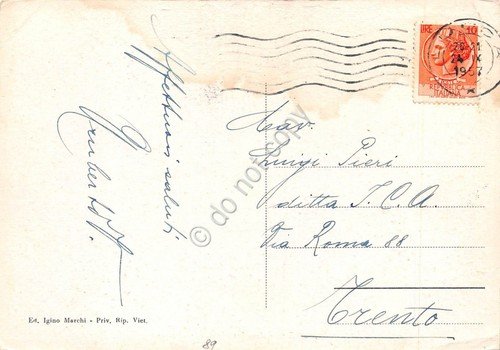 Affettuosi saluti
Umberto
LIRE 10
20-21
24 X
1957
Rag.
Luigi Pieri
ditta I.C.A.
Via Roma 88
Trento
Ed. Igino Marchi - Priv. Rip. Viet.
89
do not copy